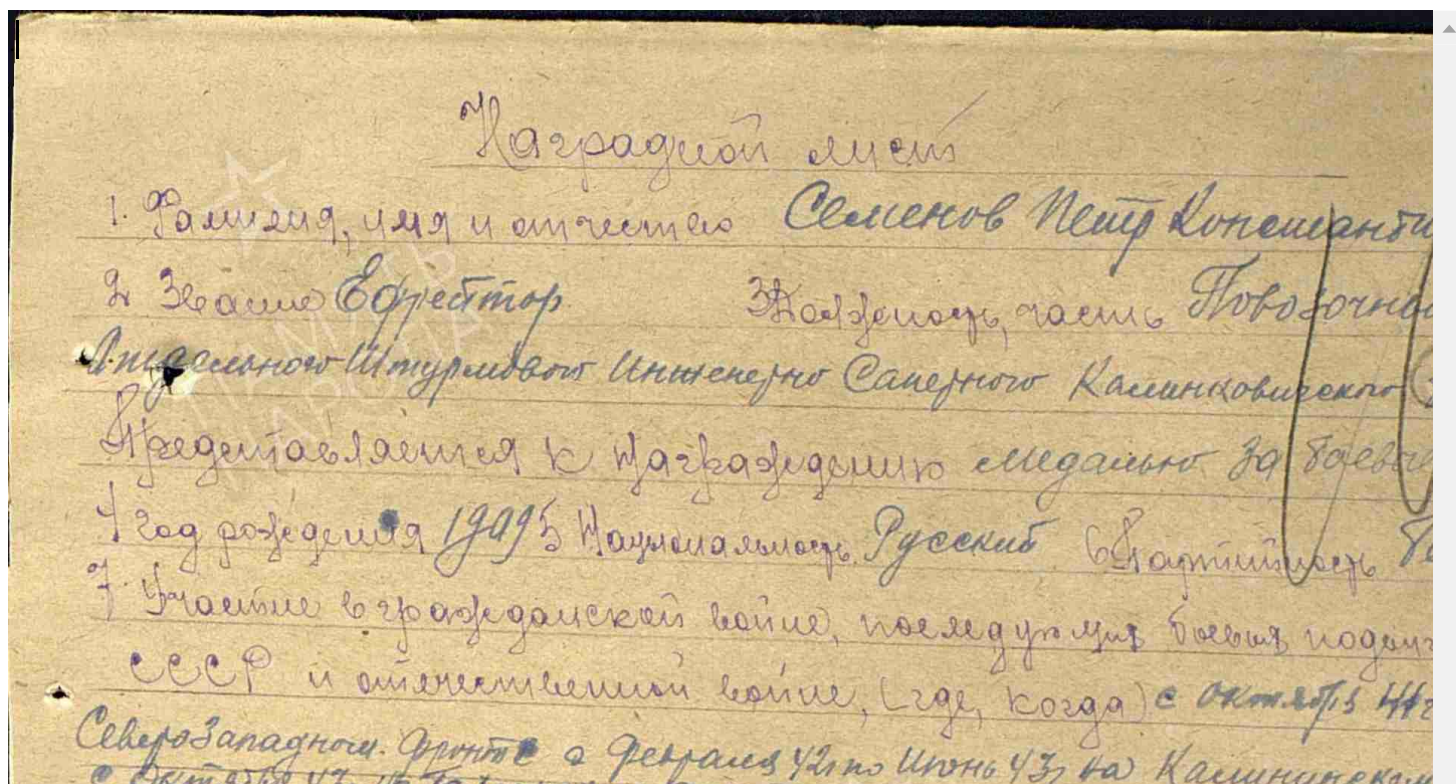 Наградной лист
1. Фамилия, имя и отчество Семенов Петр Константи
2 Звание Ефрейтор 3 Должность, часть Повозочны
Отдельного Штурмового Инженерно Саперного Калинковичского
Представляется к награждению медалью За боевые
4 год рождения 1909 5 Национальность Русский 6 Партийность
7. Участие в гражданской войне, последующих боевых
СССР и отечественной войне, (где, когда) с октября 41 г
Северо Западном фронте с февраля 42 г по Июнь 43 г на Калининском
ПАМЯТЬ
НАРОДА